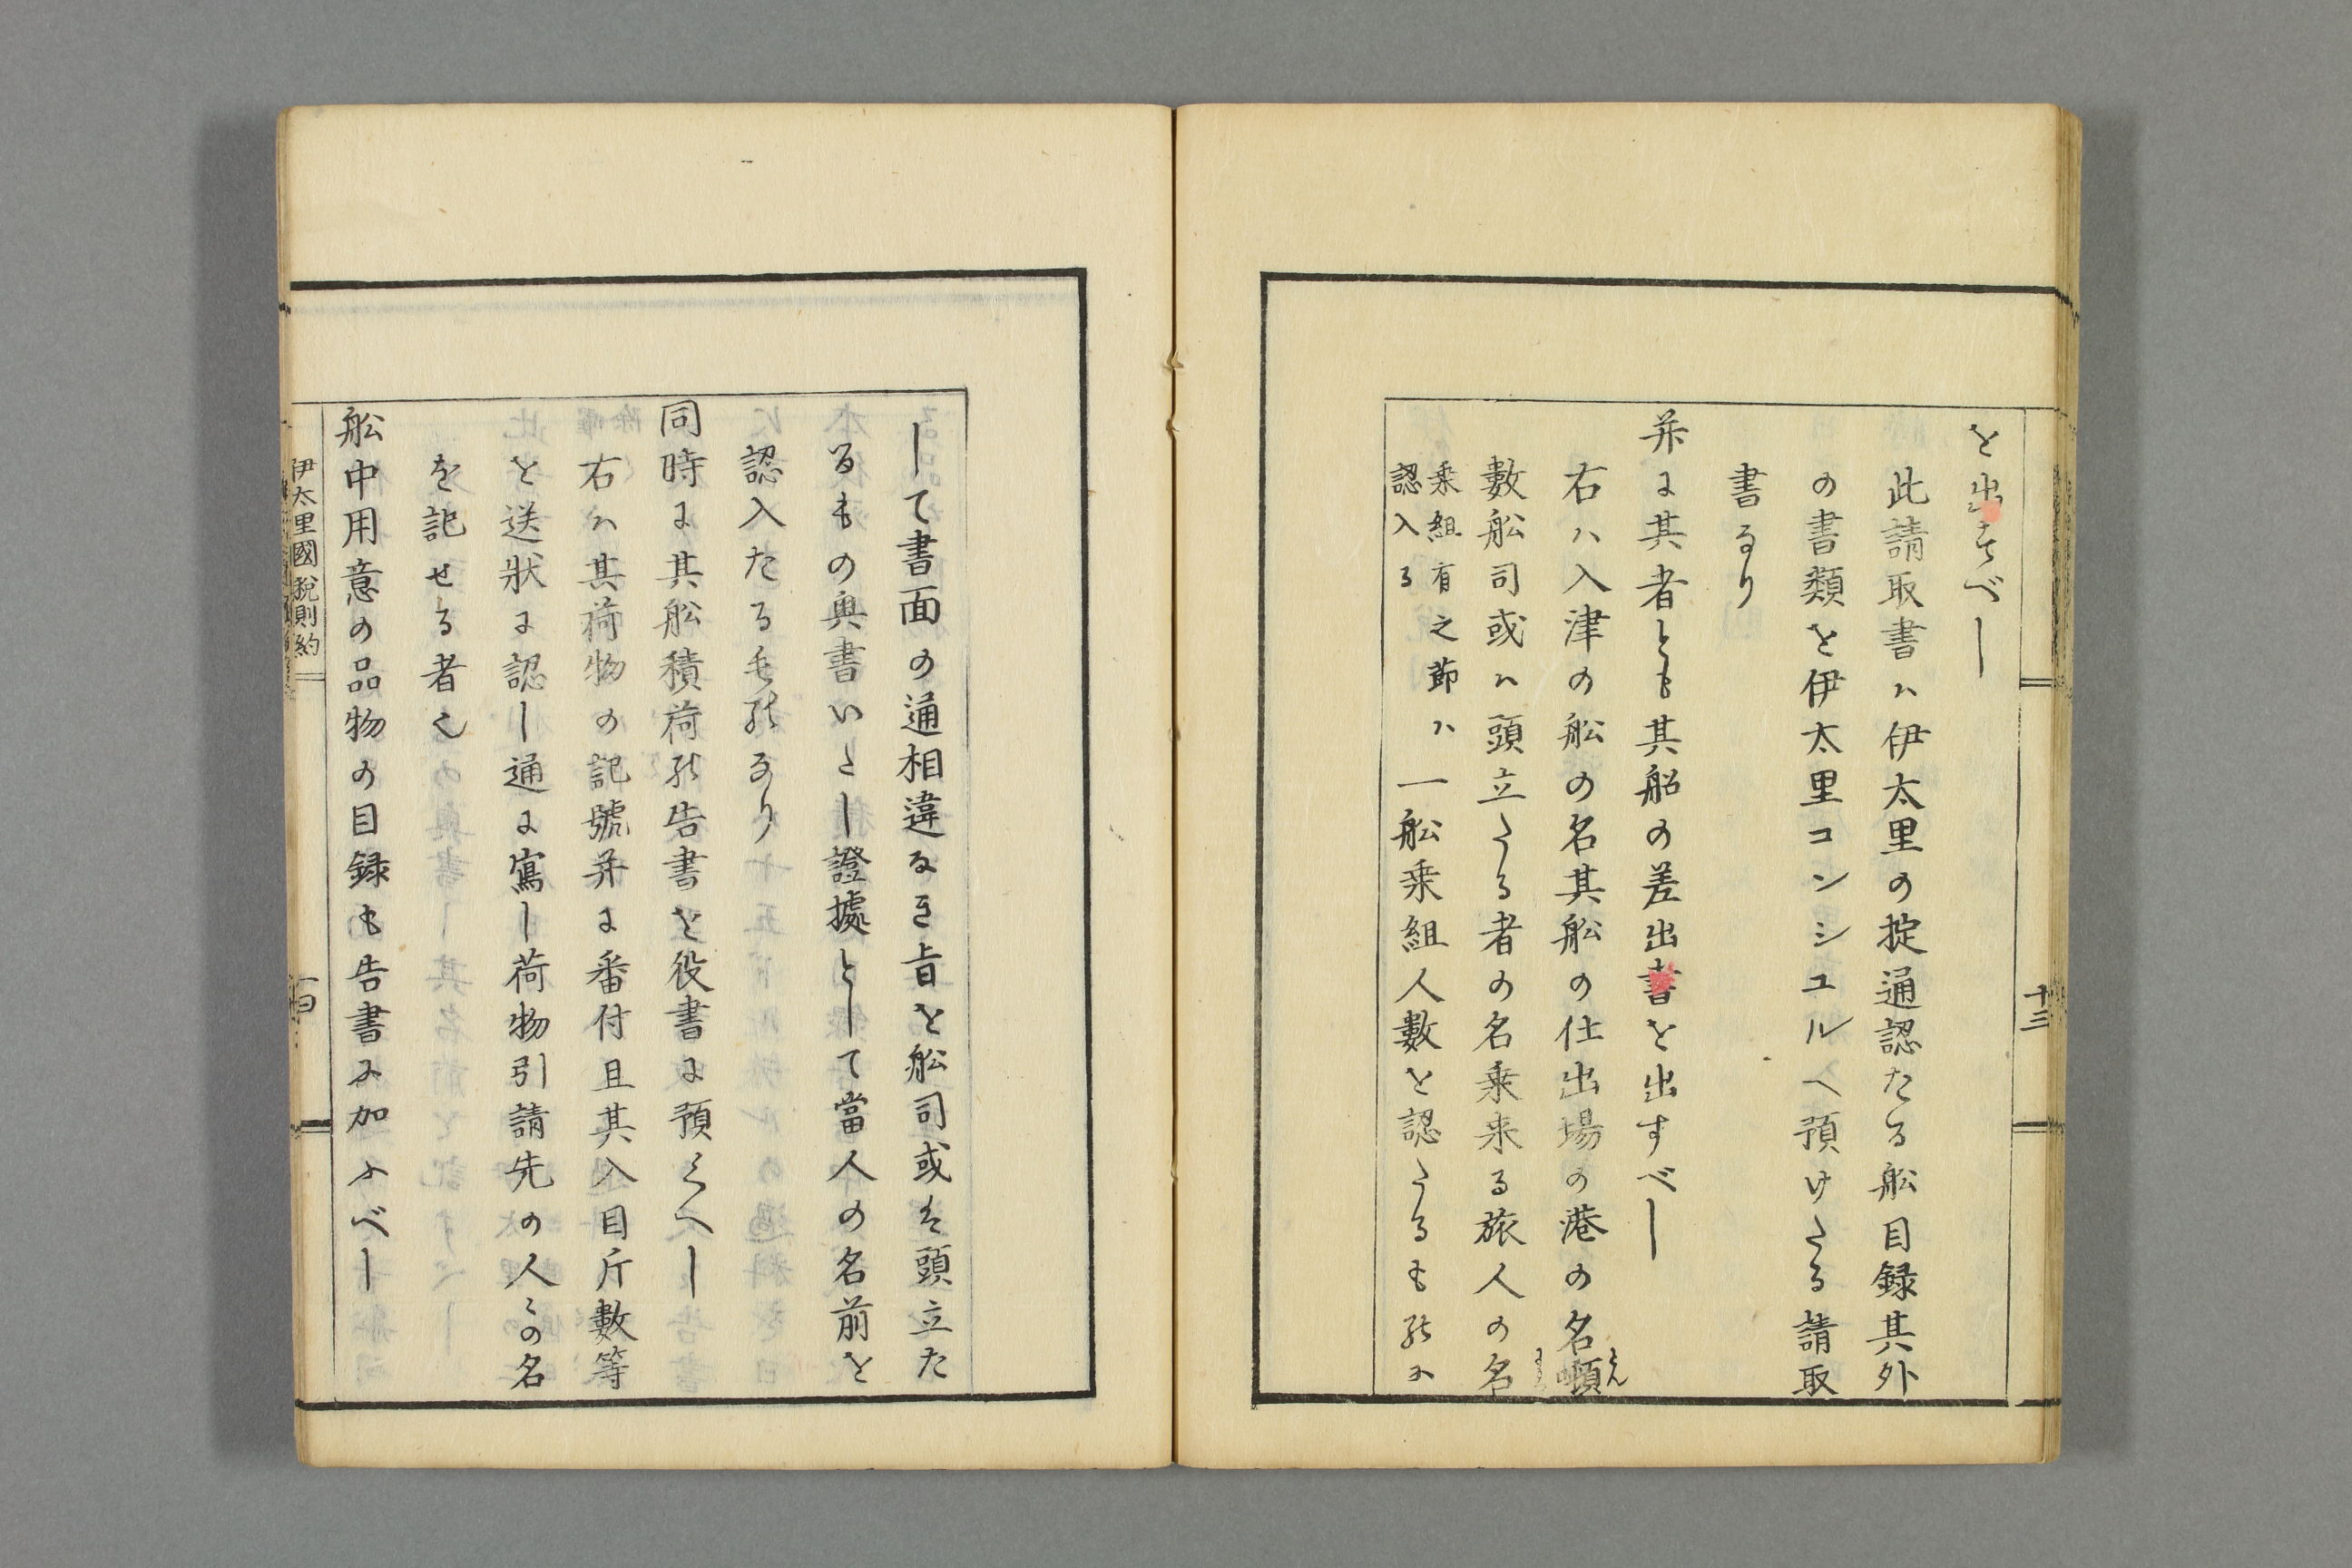 を出すべし
此請取書ハ伊太里の掟通認たる舩目録其外
の書類を伊太里コンシユルへ預けたる請取
書なり
并に其者とも其船の差出書を出すべし
右ハ入津の舩の名其舩の仕出場の港の名噸
とん
數舩司或ハ頭立たる者の名乗来る旅人の名
乗組有之節ハ
認入る
一舩乗組人數を認たるものに
十三
して書面の通相違なき旨を舩司或は頭立た
るもの奥書いたし證據として當人の名前を
認入たるものなり
同時に其舩積荷の告書を役書に預くへし
右ハ其荷物の記號并に番付且其入目斤數等
を送状に認し通に寫し荷物引請先の人々の名
を記せる者也
舩中用意の品物の目録も告書に加ふべし
伊太里國税則約